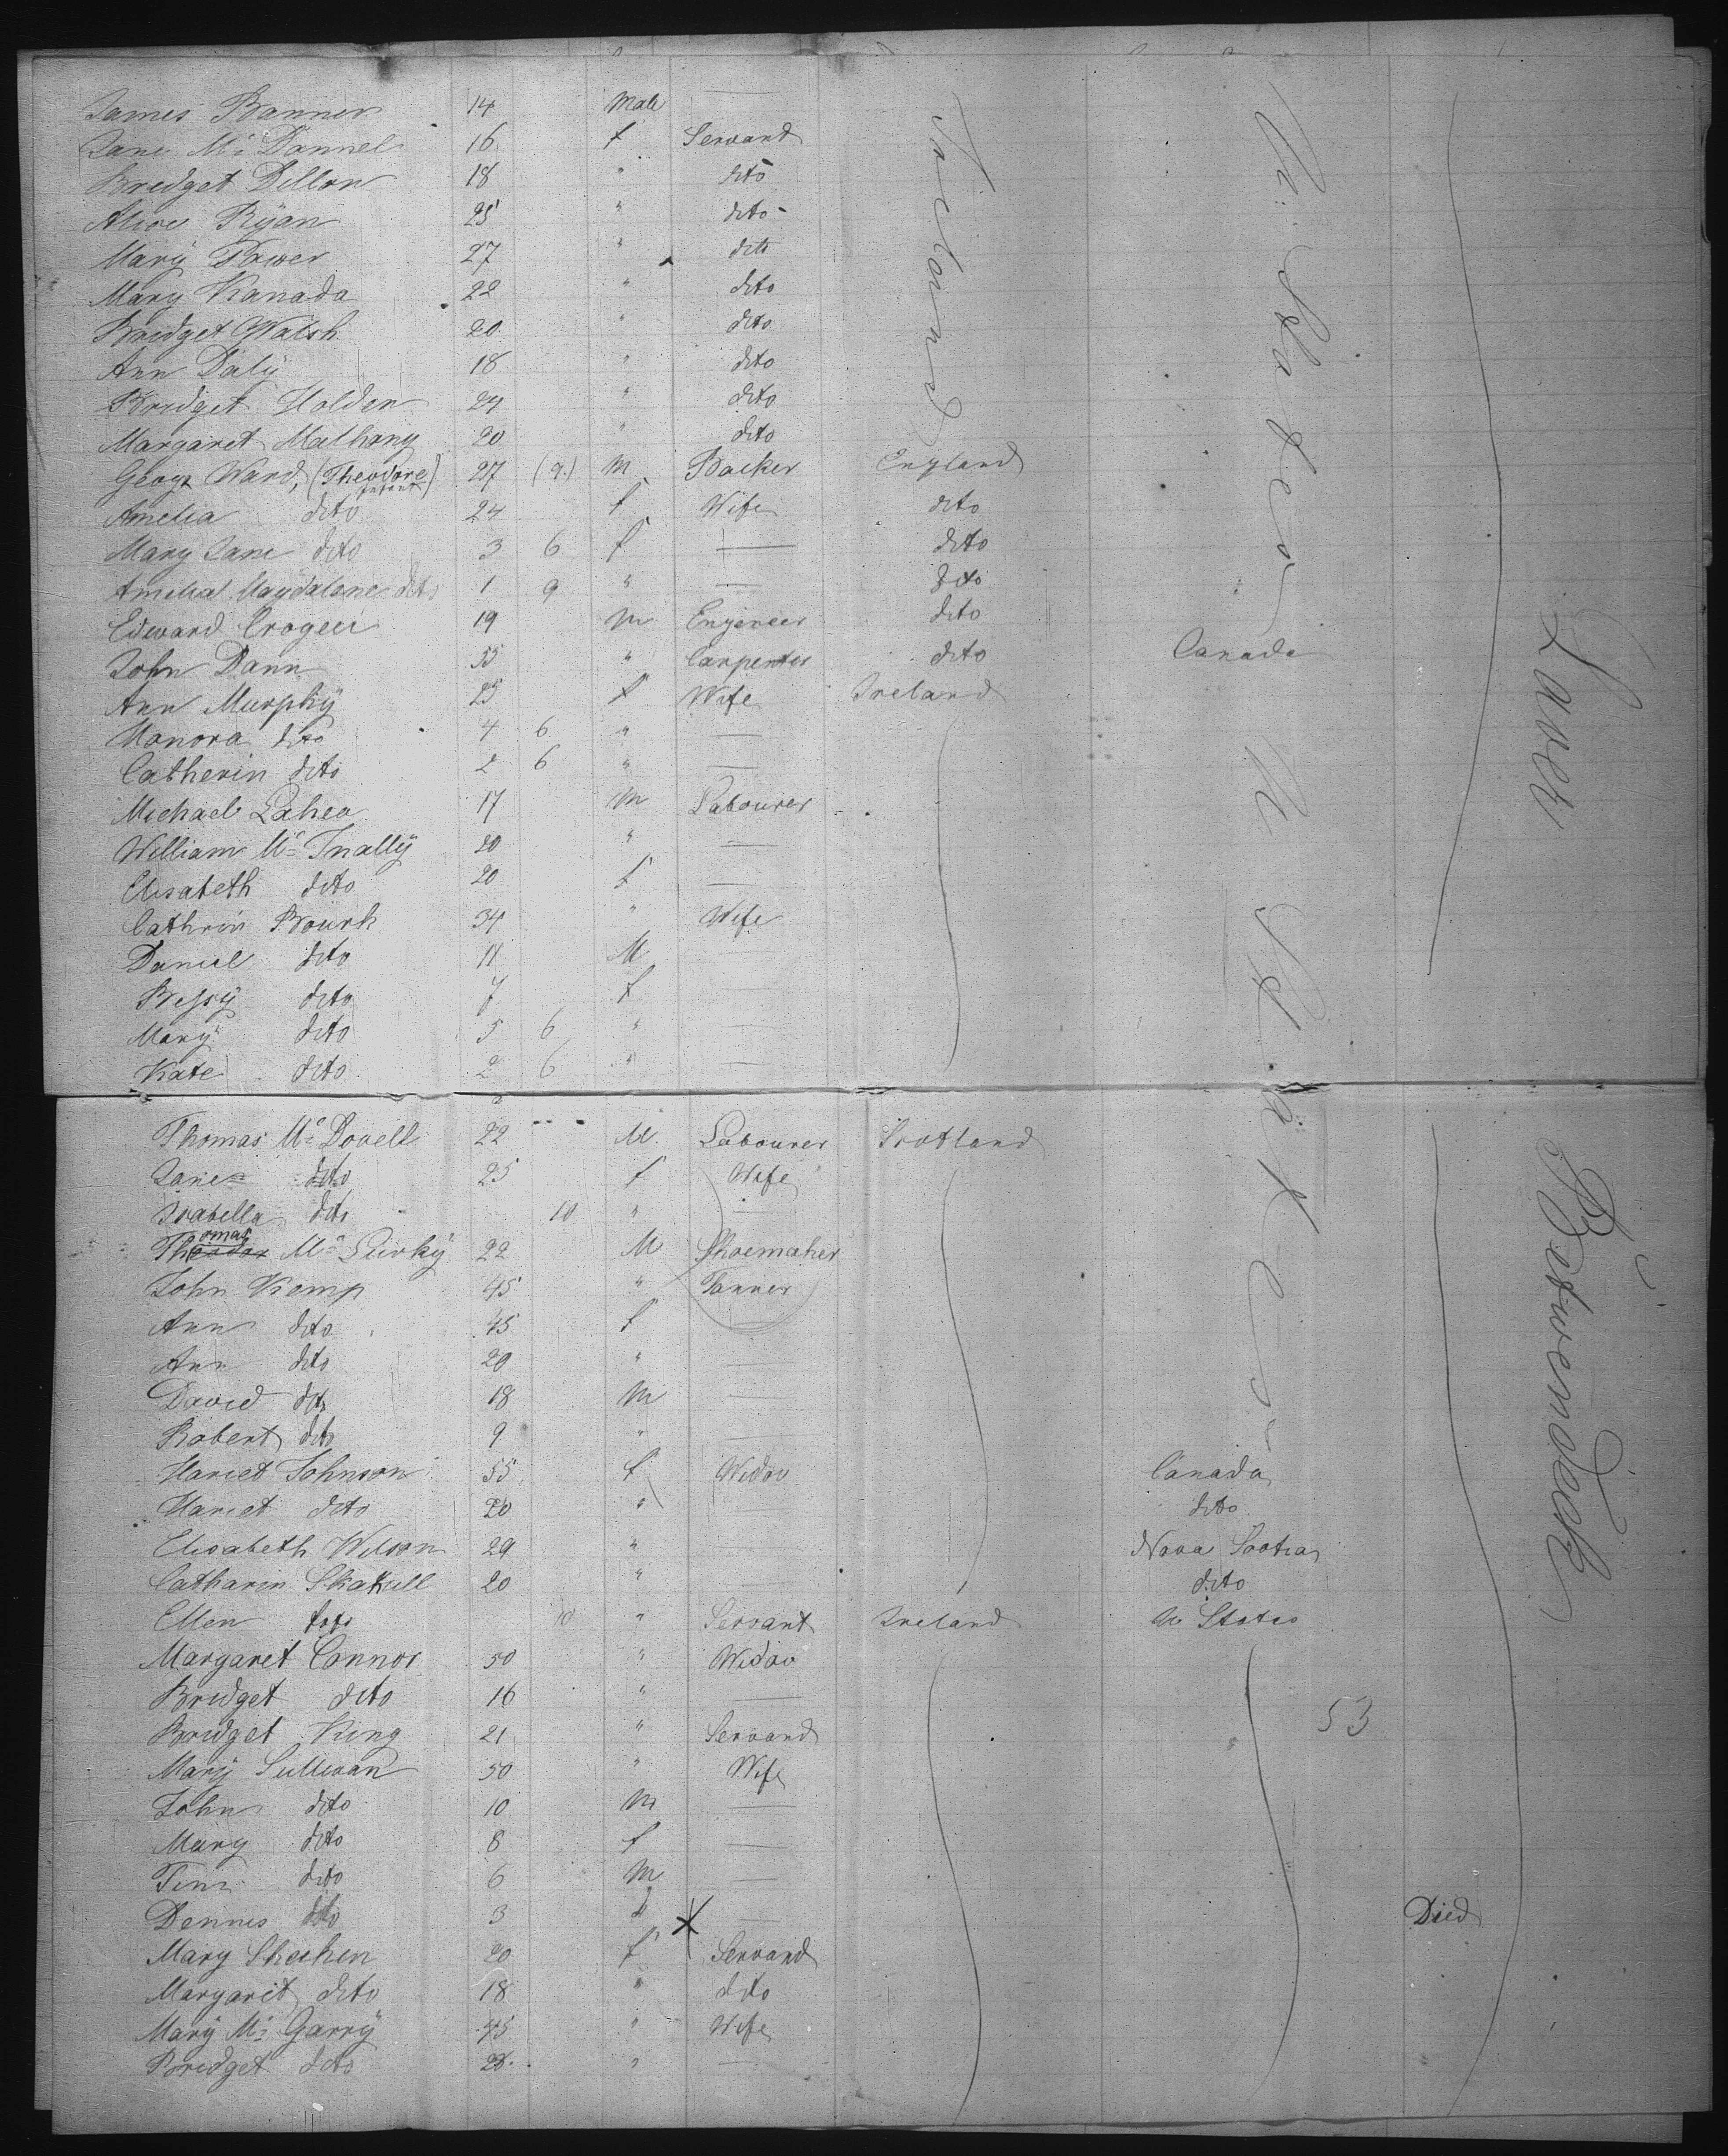 James Banner 14 Male —
Jane Mc Donnel 16 f Servand
Bridget Dillon 18 " dito
Alice Ryan 25 " dito
Mary Power 27 " dito
Mary Kanada 22 " dito
Bridget Walsh 20 " dito
Ann Daly 18 " dito
Bridget Holden 24 " dito
Margaret Malhony 20 " dito
Ireland
U. States
George Ward, (Theodore infant) 27 (9.) m Backer England
Amelia dito 24 f Wife dito
Mary Jane dito 3 6 f — dito
Amelia Magdalene dito 1 9 " — dito
Edward Crogeii 19 m Engeneer dito
John Dann 55 " Carpenter dito Canada
Ann Murphy 25 f Wife Ireland
Honora dito 4 6 " —
Catherin dito 2 6 " —
Michael Lahea 17 m Labourer
William Mc Inally 20 " —
Elisabeth dito 20 f —
Cathrin Bourk 34 " Wife
Daniel dito 11 M —
Bessy dito 7 f —
Mary dito 5 6 " —
Kate dito 2 6 " —
U States
Lower
Thomas Mc Dovell 22 M. Labourer Scotland
Jane dito 25 f Wife
Isabella dito 10 " —
Thomas Mc Lurky 22 M Shoemaker
John Kemp 45 " Tanner
Ann dito 45 f —
Ann dito 20 " —
David dito 18 m —
Robert dito 9 " —
Hariet Johnson 55 f Widov Canada
Hariet dito 20 " — dito
Elisabeth Wilson 29 " — Nova Scotia
Catharin Skakull 20 " — dito
Ellen dito 10 " Servant Ireland U States
Margaret Connor 50 " Widov
Bridget dito 16 " —
Bridget King 21 " Servand
53
Mary Sullivan 50 " Wife
John dito 10 m —
Mary dito 8 f —
Tim dito 6 m —
Dennis dito 3 " X — Died
Mary Sheehen 20 f Servand
Margarit dito 18 " dito
Mary Mc Garry 45 " Wife
Bridget dito 28 " —
Betwendeck